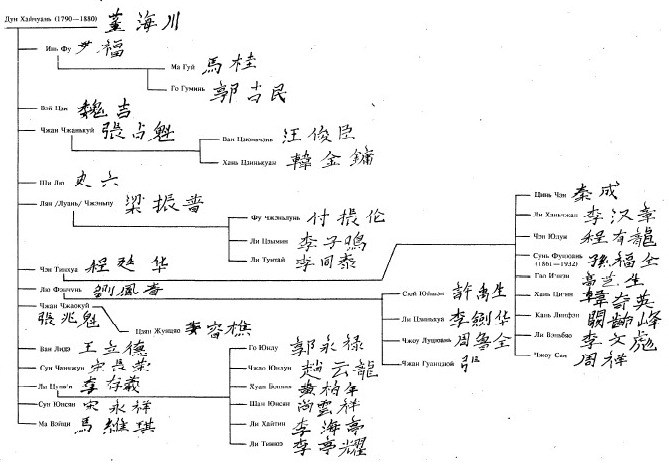 Дун Хайчуань (1790—1880) 董海川
Инь Фу 尹福
Ма Гуй 馬桂
Го Гуминь 郭古民
Вэй Цзи 魏吉
Чжан Чжанькуй 張占魁
汪俊臣
Хань Цзинькуан 韓金鏞
Ши Лю 史六
Лян /Луань/ Чжэньпу 梁振普
Фу Чжэньлунь 付振伦
Ли Цзымин 李子鳴
Ли Тунтай 李同泰
Цинь Чэн 秦成
Ли Ханьчжан 李汉章
Чэн Юлун 程有龍
Сунь Фуцюань (1861—1932) 孫福全
Гао Ишэн 高艺生
Хань Цигэн 韓奇英
Кань Линфэн 闞齡峰
Ли Вэньбяо 李文彪
Чжоу Сян 周祥
Чэн Тинхуа 程廷华
Лю Фэнчунь 劉鳳春
許禹生
Ли Цзиньхуа 李劍华
周魯全
Чжан Гуанцзюй 張
Чжан Чжаокуй
張兆魁
Цзян Жунцяо 容樵
Ван Лидэ 王立德
宋長榮
李存義
Сун Юнсян 宋永祥
Ма Вэйци 馬維琪
Го Юнлу 郭永禄
Чжао Юнлун 趙云龍
黄柏年
Шан Юнсян 尚雲祥
Ли Хайтин 李海亭
Ли Тинъяо 李亭耀